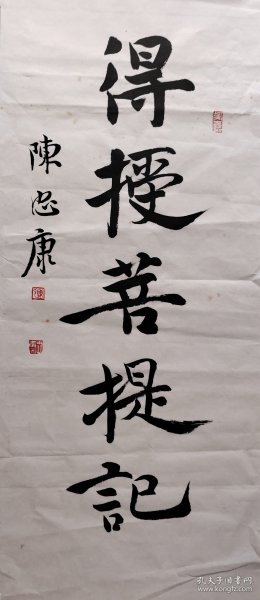 得授菩提記
陳忠康
孔夫子旧书网
www.kongfz.com